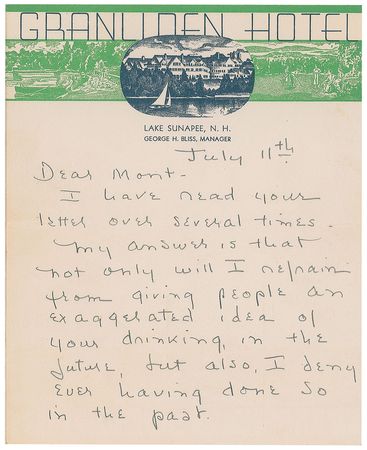 GRANLIDEN HOTEL
LAKE SUNAPEE, N. H.
GEORGE H. BLISS, MANAGER
July 11th
Dear Mont-
I have read your
letter over several times.
My answer is that
not only will I refrain
from giving people an
exaggelated idea of
your drinking, in the
future, but also, I deny
ever having done so
in the past.